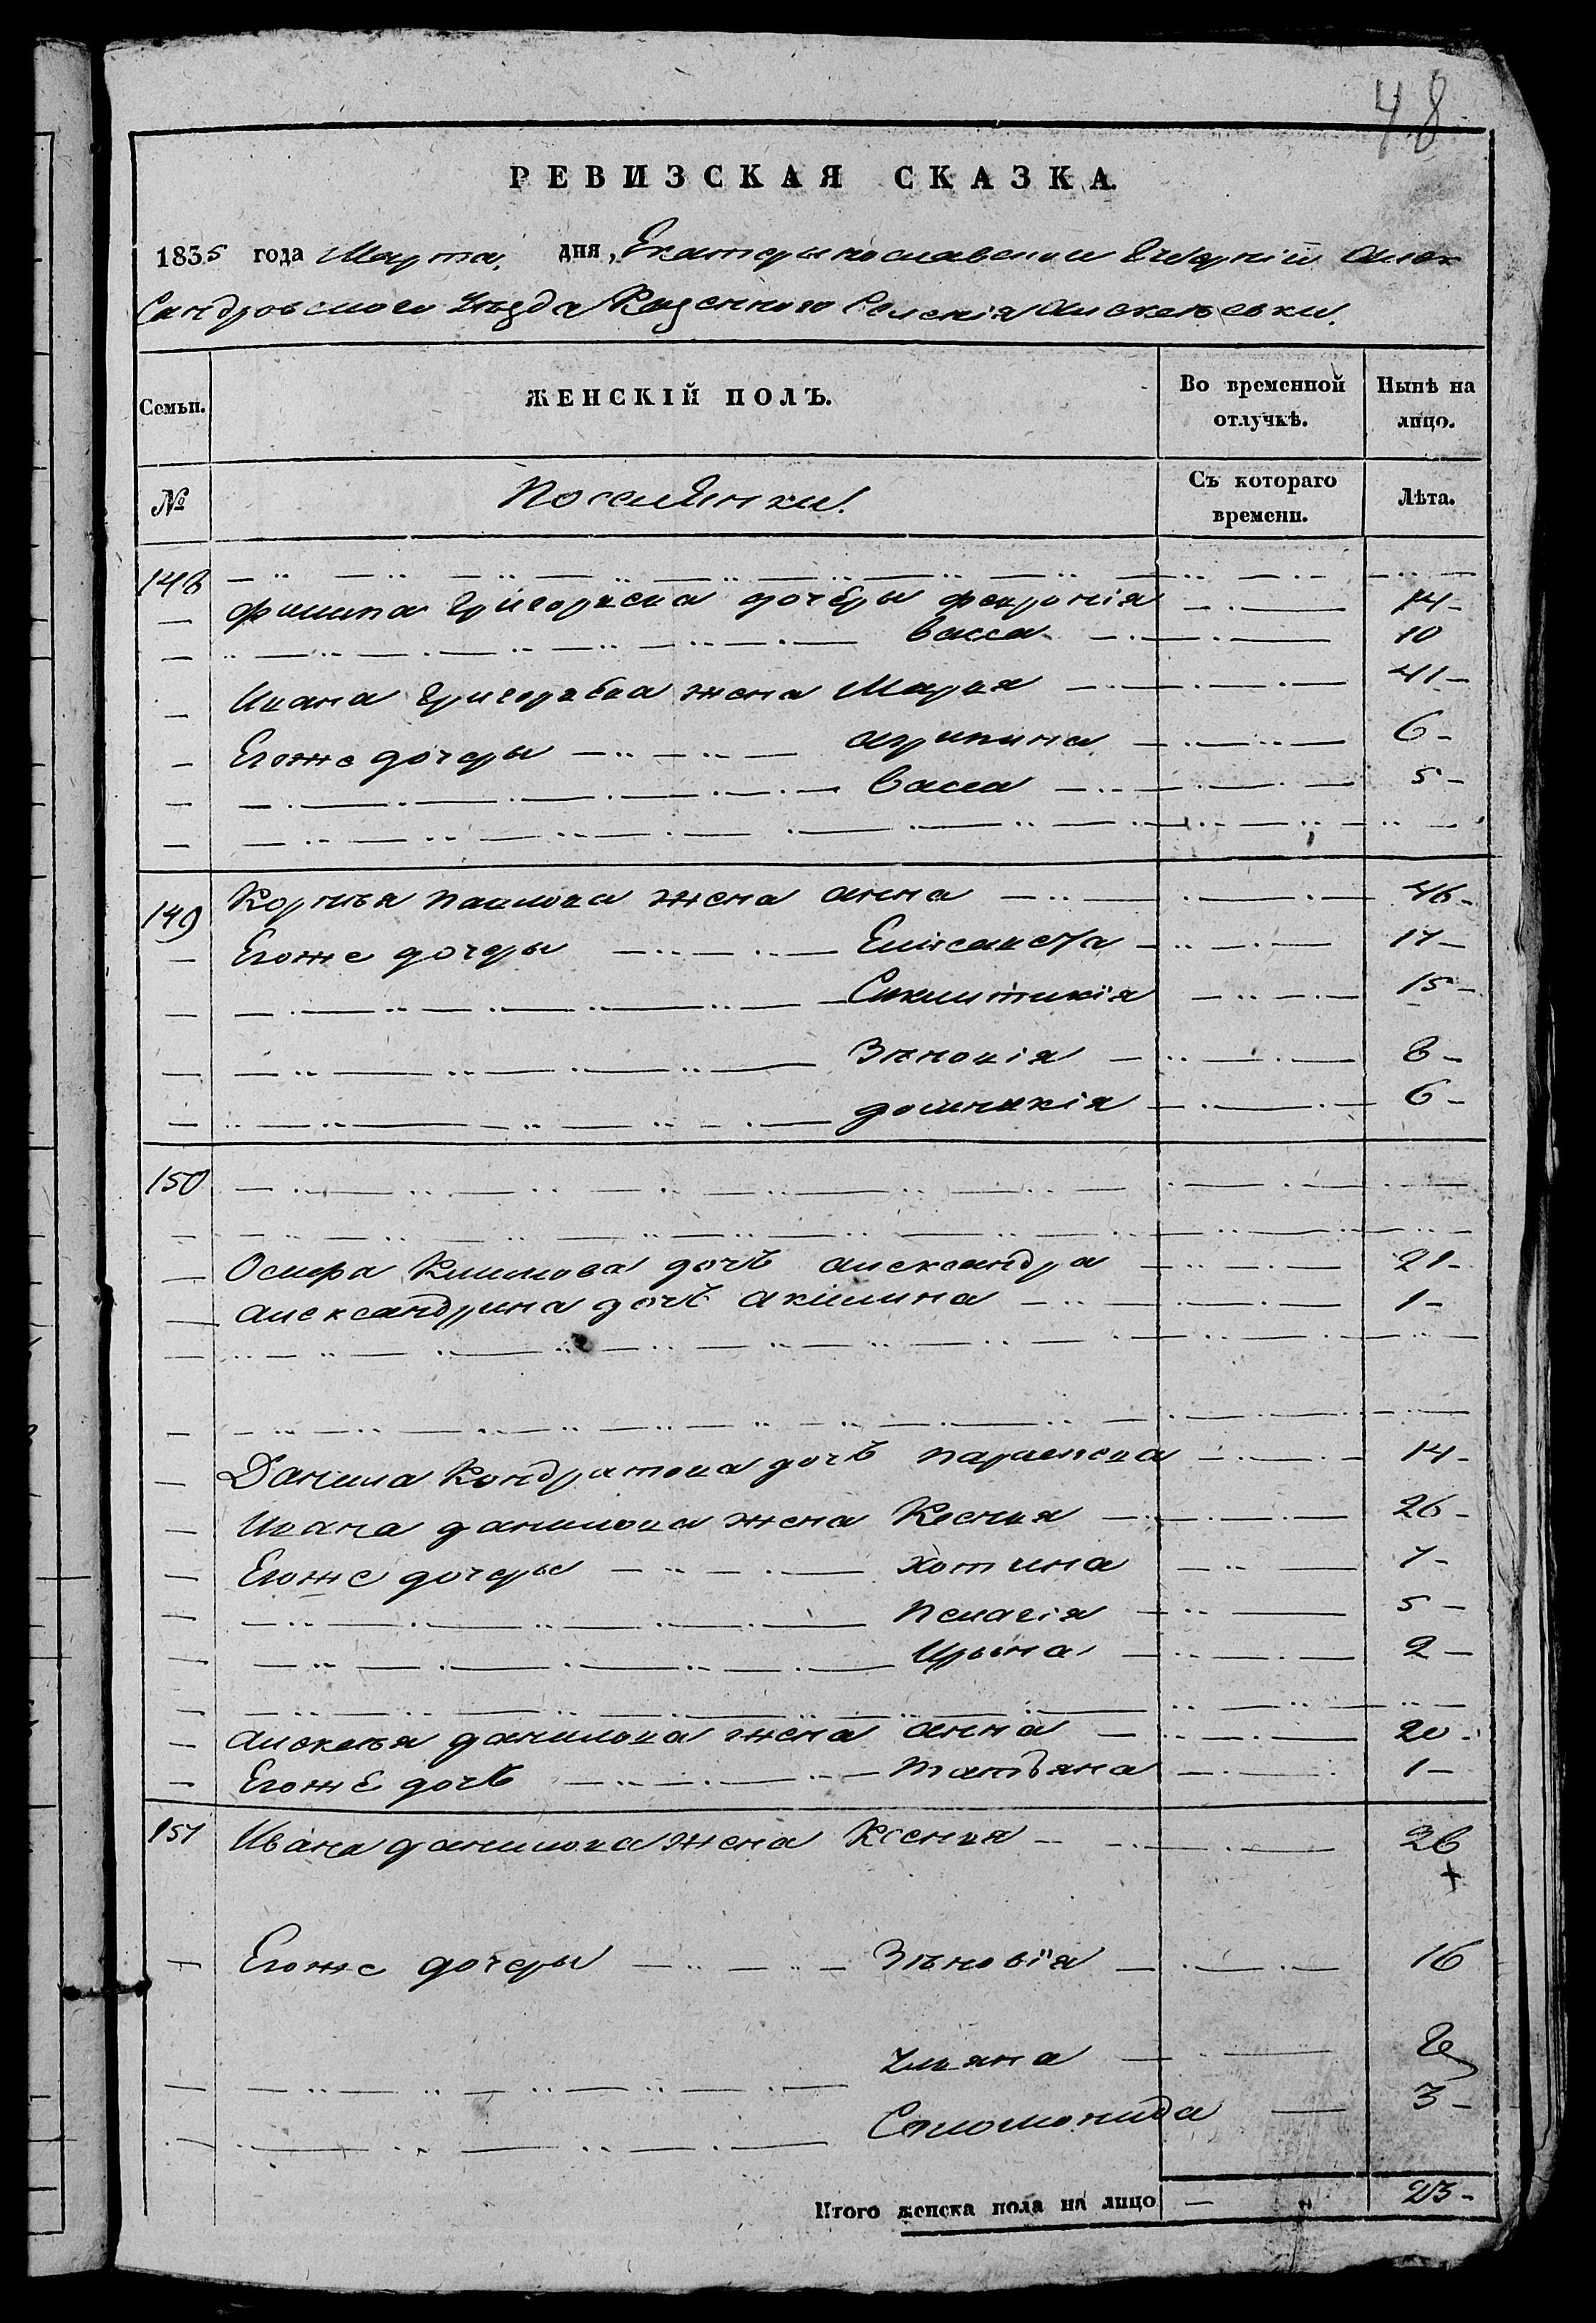 48
РЕВИЗСКАЯ СКАЗКА.
1835 года Марта, дня, Екатеринославской Губерніи Алек
сандровского Уезда Казенного Селенія Алексеевки.
Семьи. ЖЕНСКІЙ ПОЛЪ. Во временной отлучкѣ. Нынѣ на лицо.
№ Поселянки. Съ котораго времени. Лѣта.
148
Филипа Григорьева дочеры Февронія 14
Васса 10
Ивана Григорьева жена Марья 41
Егоже дочеры агрипина 6
Васса 5
149 Корнея Павлова жена анна 46
Егоже дочеры Елисавета 17
Сиклитикія 15
Зѣновія 8
домникія 6
150
Климова дочь александра 21
александрина дочь акилина 1
Данила Кондратова дочь параскева 14
Ивана данилова жена Ксения 26
Егоже дочеры хотина 7
Пелагія 5
Ирина 2
алексея данилова жена анна 20
Егоже дочь татьяна 1
151 Ивана данилова жена Ксения 36
+
Егоже дочеры Зѣновія 16
улияна
Соломонида 3
Итого женска пола на лицо 23